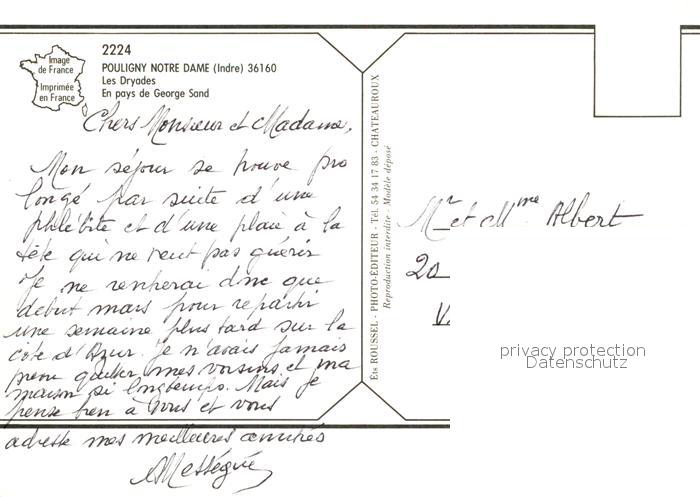 Image
de France
Imprimée
en France
2224
POULIGNY NOTRE DAME (Indre) 36160
Les Dryades
En pays de George Sand
Chers Monsieur et Madame,
Mon séjour se trouve pro
longé par suite d'une
phlébite et d'une plaie à la
tête qui ne veut pas guérir
Je ne rentrerai donc que
début mars pour repartir
une semaine plus tard sur la
côte d'Azur. Je n'avais jamais
mes voisins et ma
maison si longtemps. Mais je
pense bien à vous et vous
adresse mes meilleures amitiés
AMességué
Ets ROUSSEL - PHOTO-ÉDITEUR - Tél. 54 34 17 83 - CHATEAUROUX
Reproduction interdite - Modèle déposé
Mr et Mme Albert
20
V
privacy protection
Datenschutz